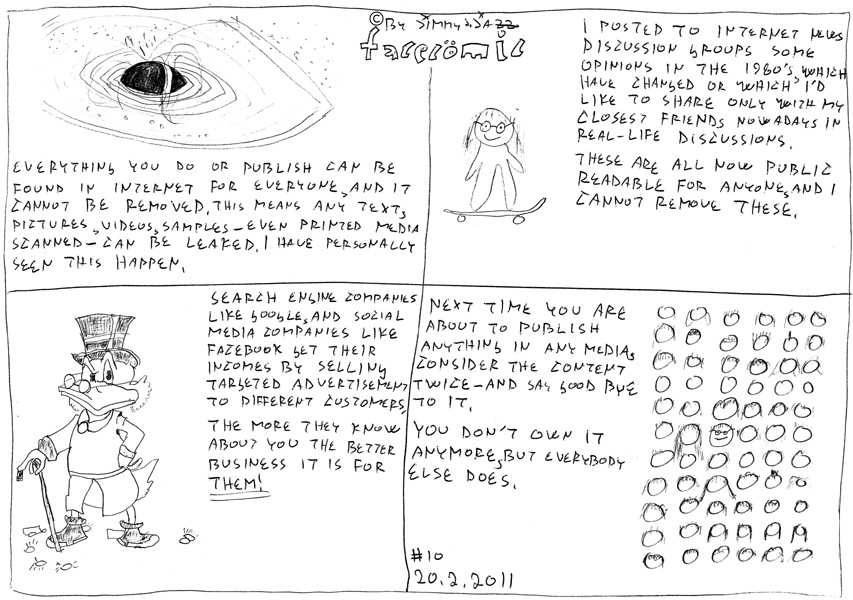 © By Jimmy J.Jazz
farcrömic
EVERYTHING YOU DO OR PUBLISH CAN BE
FOUND IN INTERNET FOR EVERYONE, AND IT
CANNOT BE REMOVED. THIS MEANS ANY TEXTS,
PICTURES, VIDEOS, SAMPLES - EVEN PRINTED MEDIA
SCANNED - CAN BE LEAKED. I HAVE PERSONALLY
SEEN THIS HAPPEN.
I POSTED TO INTERNET NEWS
DISCUSSION GROUPS SOME
OPINIONS IN THE 1980'S, WHICH
HAVE CHANGED OR WHICH I'D
LIKE TO SHARE ONLY WITH MY
CLOSEST FRIENDS NOWADAYS IN
REAL-LIFE DISCUSSIONS.
THESE ARE ALL NOW PUBLIC
READABLE FOR ANYONE, AND I
CANNOT REMOVE THESE.
SEARCH ENGINE COMPANIES
LIKE GOOGLE, AND SOCIAL
MEDIA COMPANIES LIKE
FACEBOOK GET THEIR
INCOMES BY SELLING
TARGETED ADVERTISEMENT
TO DIFFERENT CUSTOMERS.
THE MORE THEY KNOW
ABOUT YOU THE BETTER
BUSINESS IT IS FOR
THEM!
NEXT TIME YOU ARE
ABOUT TO PUBLISH
ANYTHING IN ANY MEDIA,
CONSIDER THE CONTENT
TWICE - AND SAY GOOD BYE
TO IT.
YOU DON'T OWN IT
ANYMORE, BUT EVERYBODY
ELSE DOES.
#10
20.2.2011